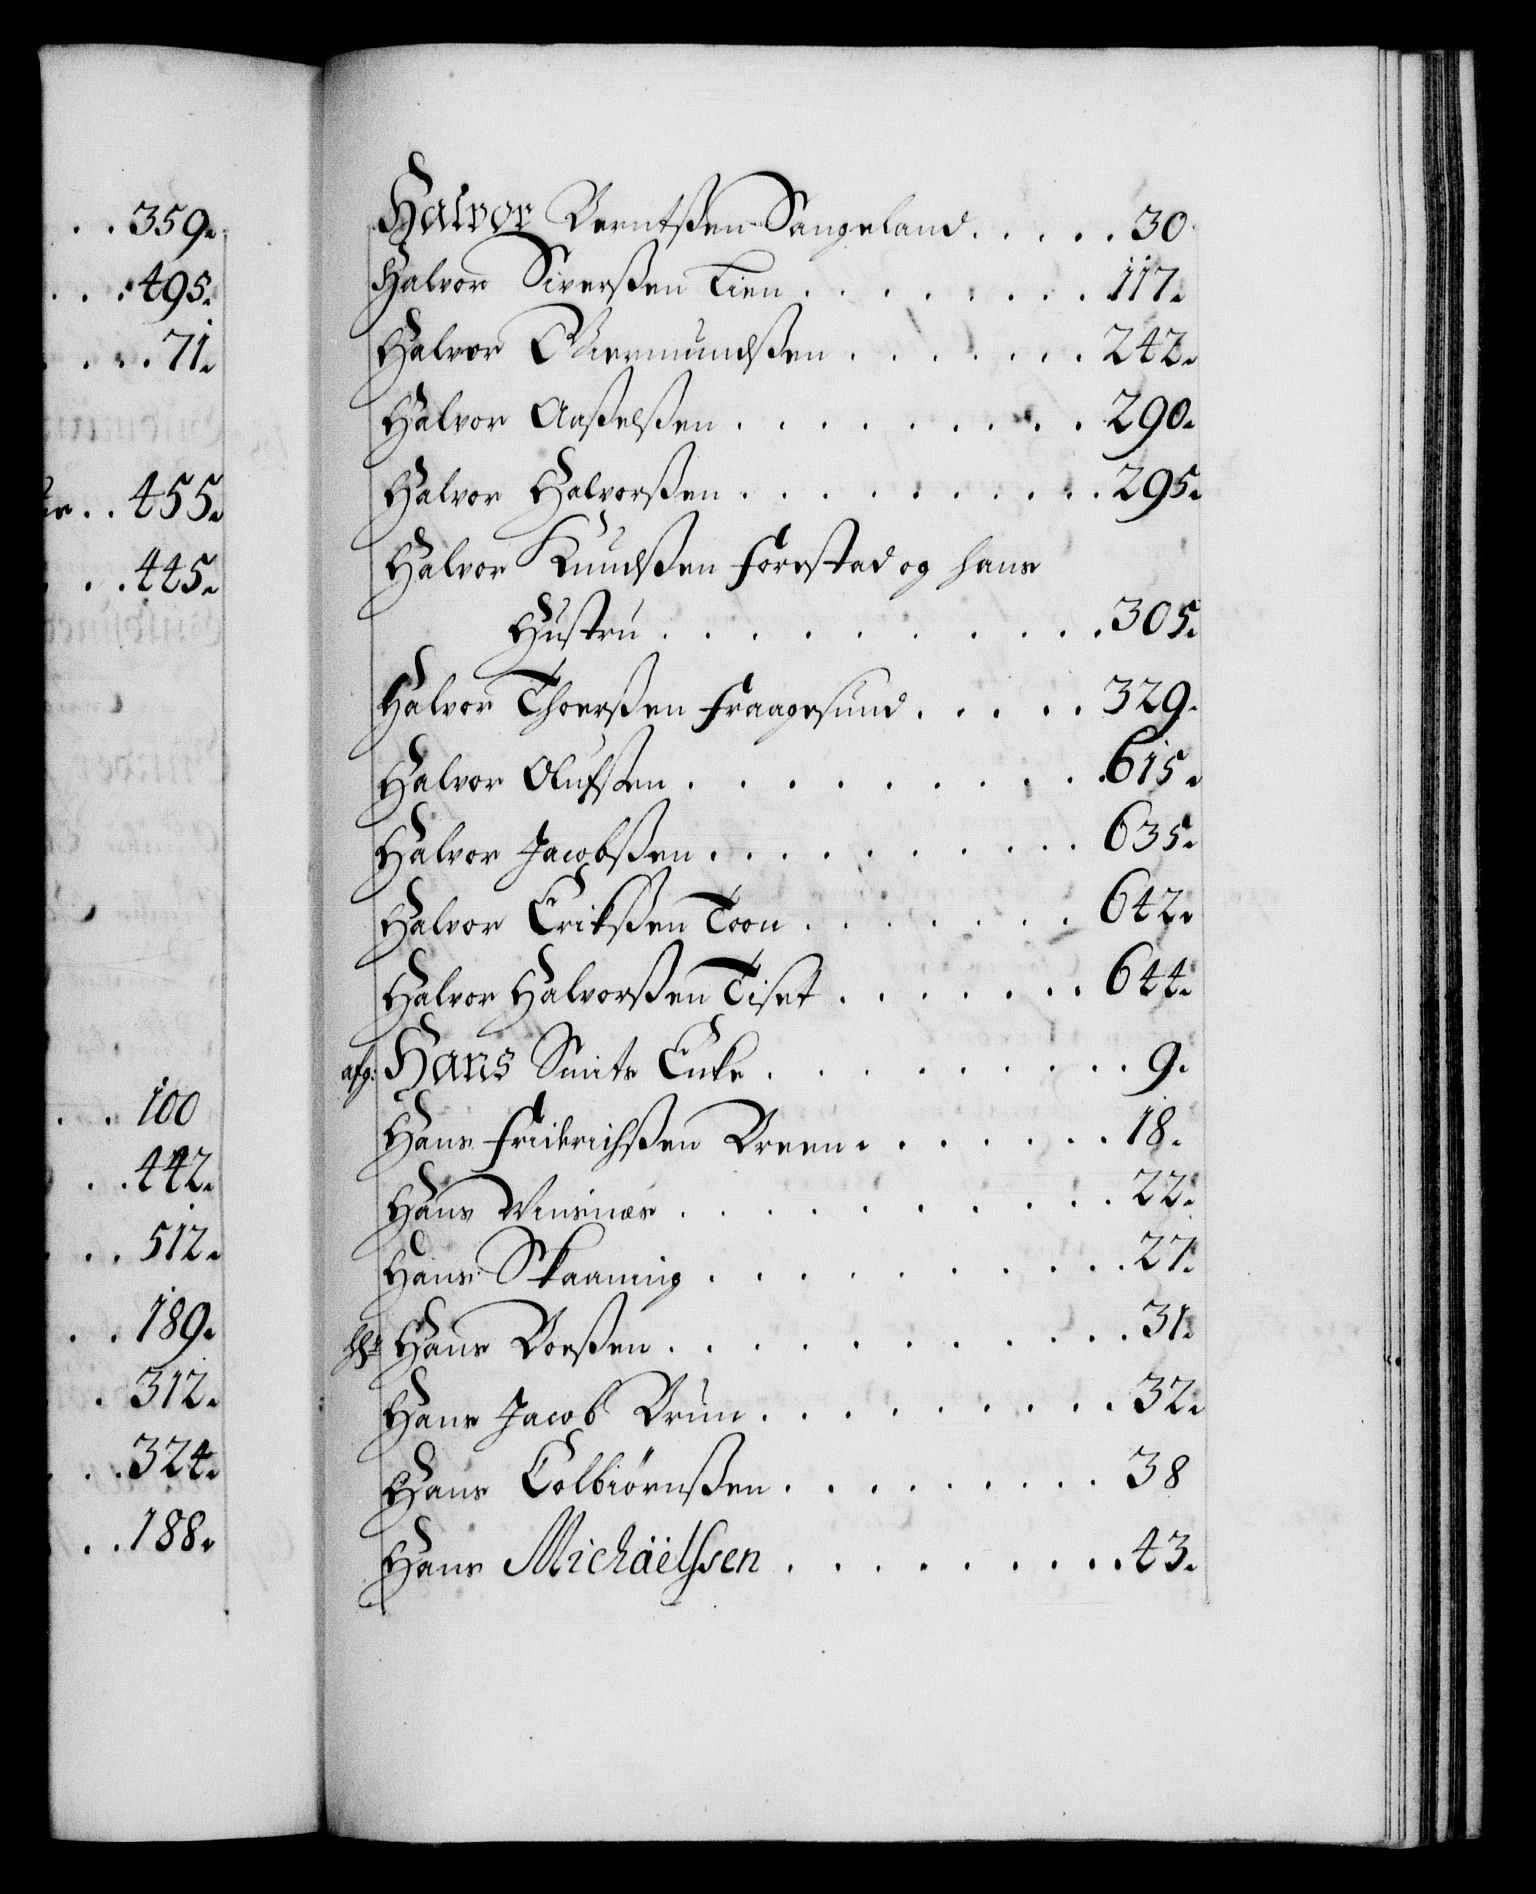 359.
495.
71.
455.
445.
100
442.
512.
189.
312.
324.
188.
Halvor Berntßen Sangeland . . . . . 30
Halvor Siverßen Lien . . . . . . . . 117.
Halvor Giermundßen . . . . . . . 242.
Halvor Aaßelßen . . . . . . . . . 290.
Halvor Halvorßen . . . . . . . . . . 295.
Halvor Knudßen Forestad og hans
Hustru . . . . . . . . . . 305.
Halvor Thoerßen Fraagesund . . . . . 329.
Halvor Olufsen . . . . . . . . . . 615.
Halvor Jacobßen . . . . . . . . . . 635.
Halvor Erikßen Toon . . . . . . . 642.
Halvor Halvorßen Tiset . . . . . . . 644.
afg: Hans Smits Enke . . . . . . . . . 9.
Hans Friderichßen Breen . . . . . . . 18.
Hans Vinsnæs . . . . . . . . . . 22.
Hans Skaaning . . . . . . . . . . 27.
Hans Boeßen . . . . . . . . . . . 31.
Hans Jacob Brun . . . . . . . . . 32.
Hans Colbiørnßen . . . . . . . . . 38
Hans Michaëlssen . . . . . . . . . 43.